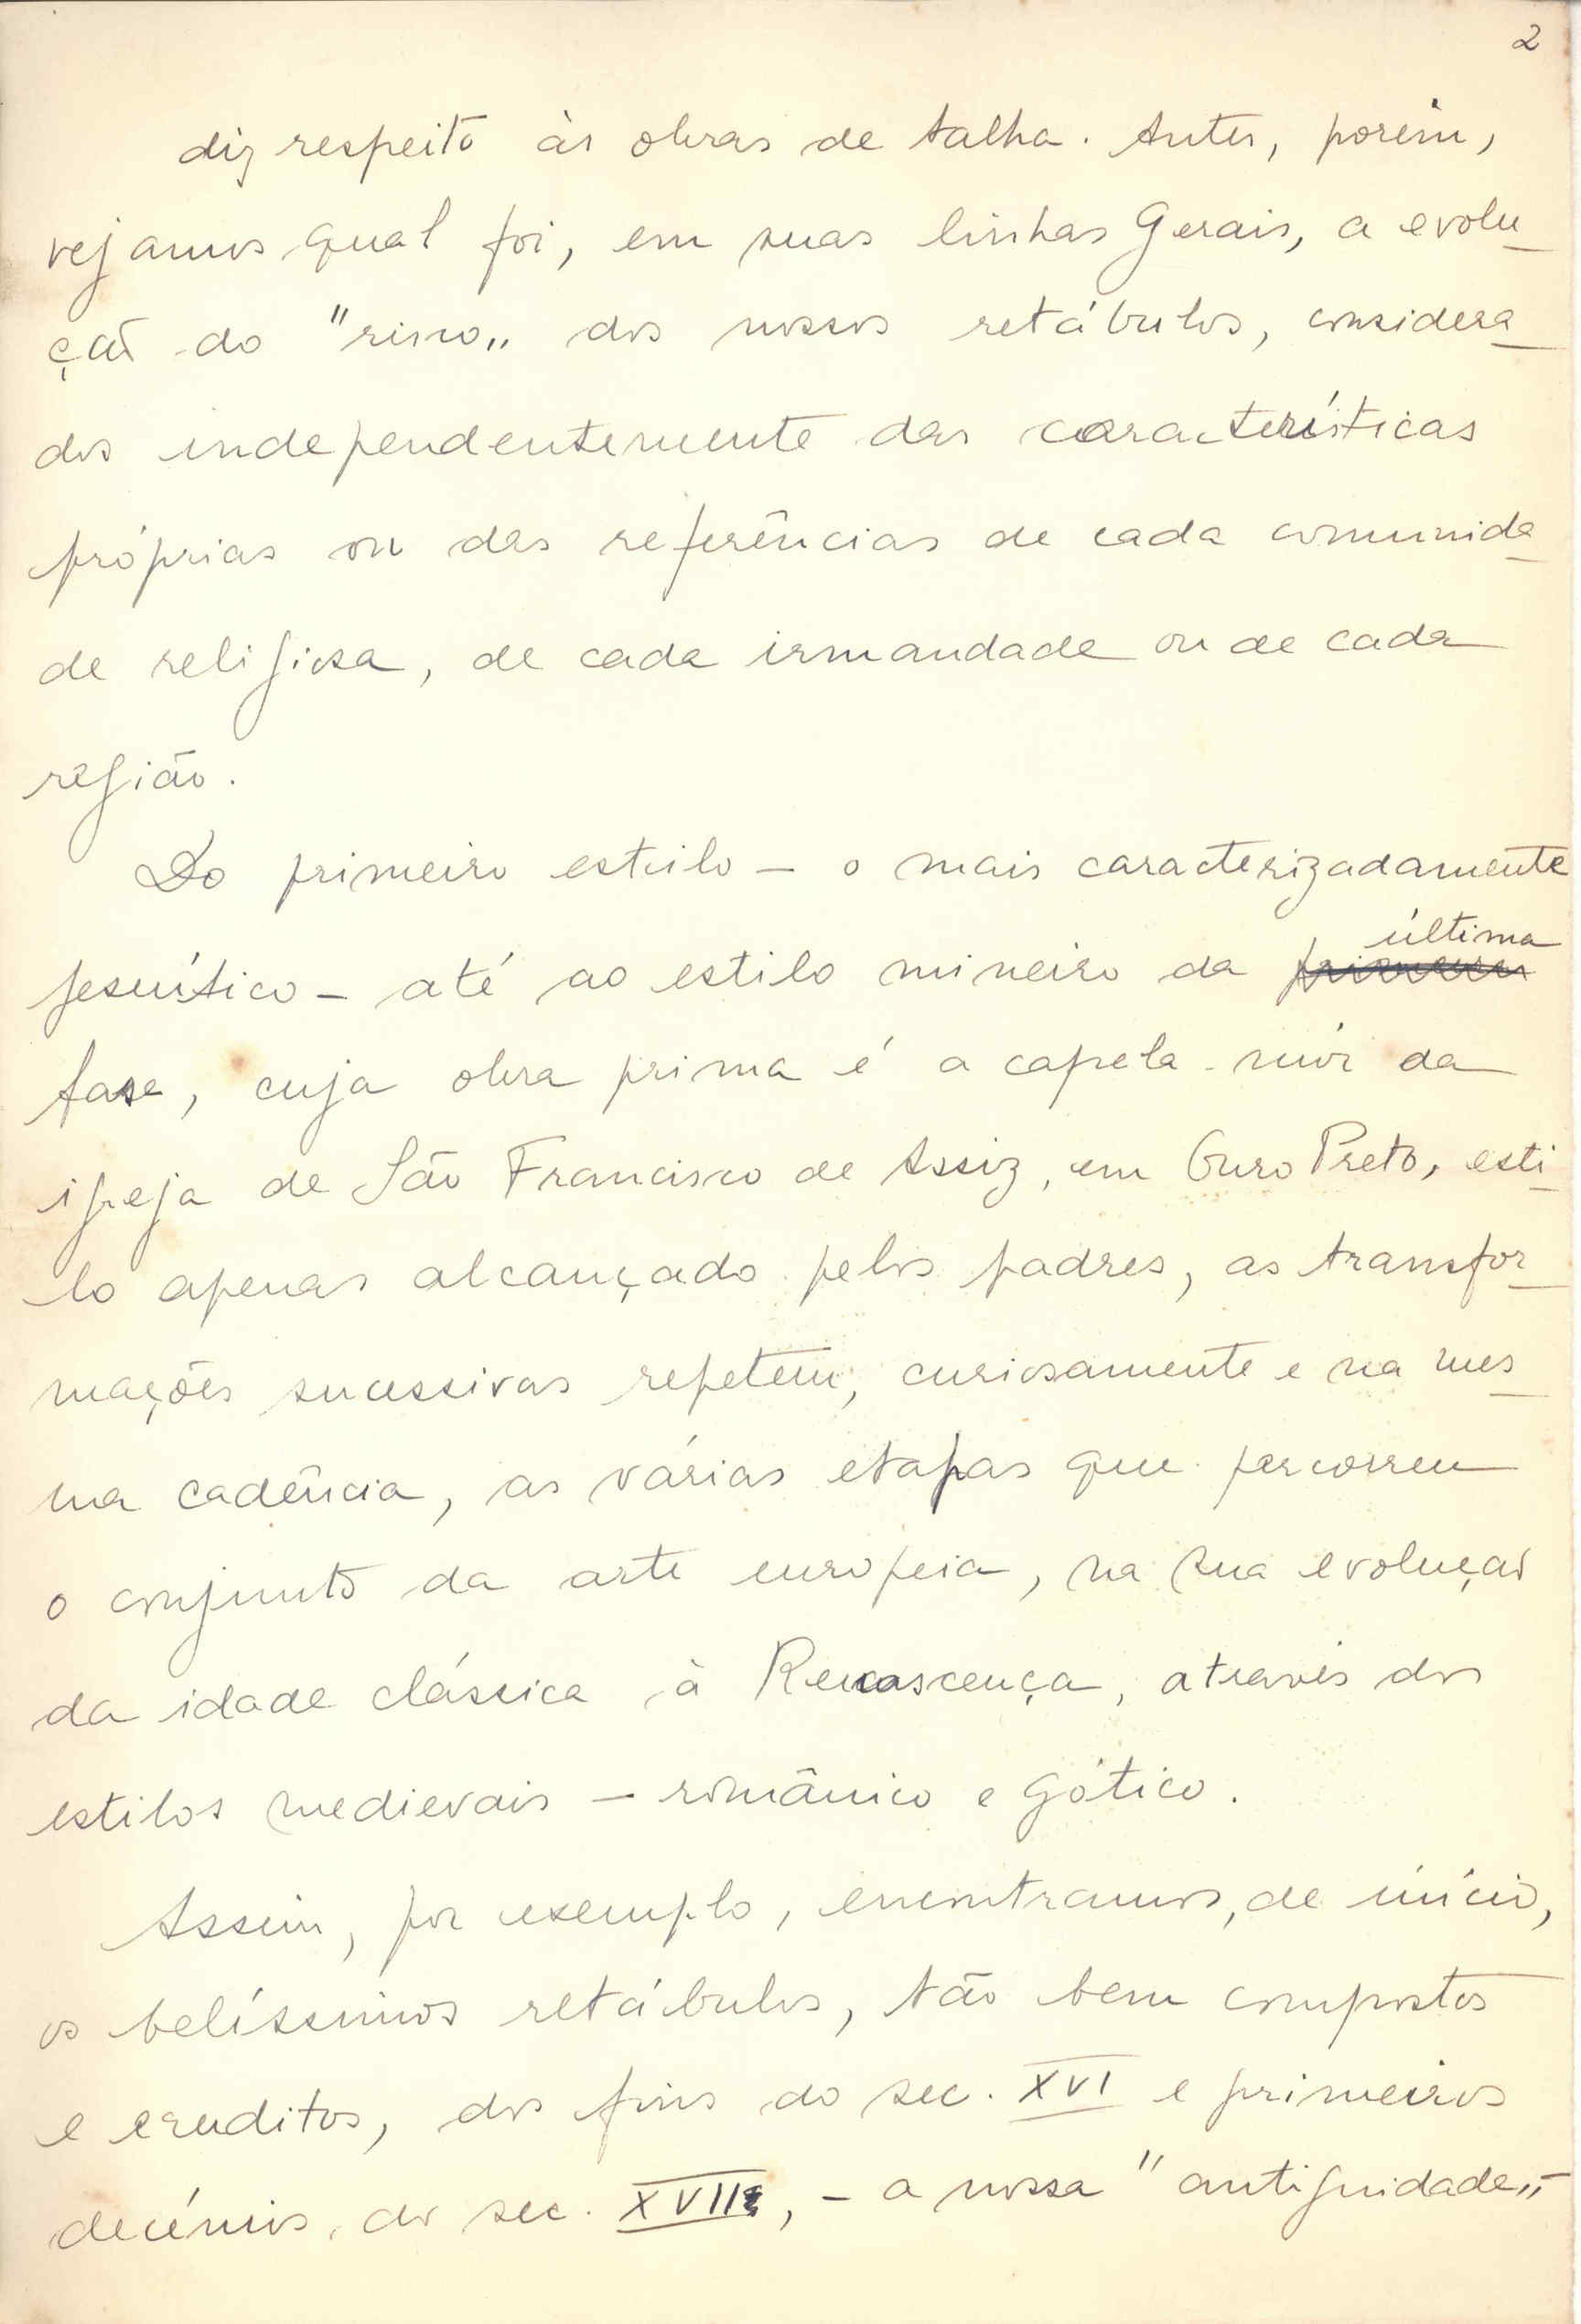 2
diz respeito às obras de talha. Antes, porém,
vejamos qual foi, em suas linhas gerais, a evolu
ção do "risco„ dos nossos retábulos, considera
dos independentemente das características
próprias ou das referências de cada comunida
de religiosa, de cada irmandade ou de cada
região.
Do primeiro estilo – o mais caracterizadamente
última
jesuítico – até ao estilo mineiro da primeira
fase, cuja obra prima é a capela-mór da
igreja de São Francisco de Assiz, em Ouro Preto, esti
lo apenas alcançado pelos padres, as transfor
mações sucessivas repetem, curiosamente e na mes
ma cadência, as várias etapas que percorreu
o conjunto da arte europeia, na sua evolução
da idade clássica à Renascença, através dos
estilos medievais – românico e gótico.
Assim, por exemplo, encontramos, de início,
os belíssimos retábulos, tão bem compostos
e eruditos, dos fins do sec. XVI e primeiros
decénios do sec. XVII, – a nossa "antiguidade„ –